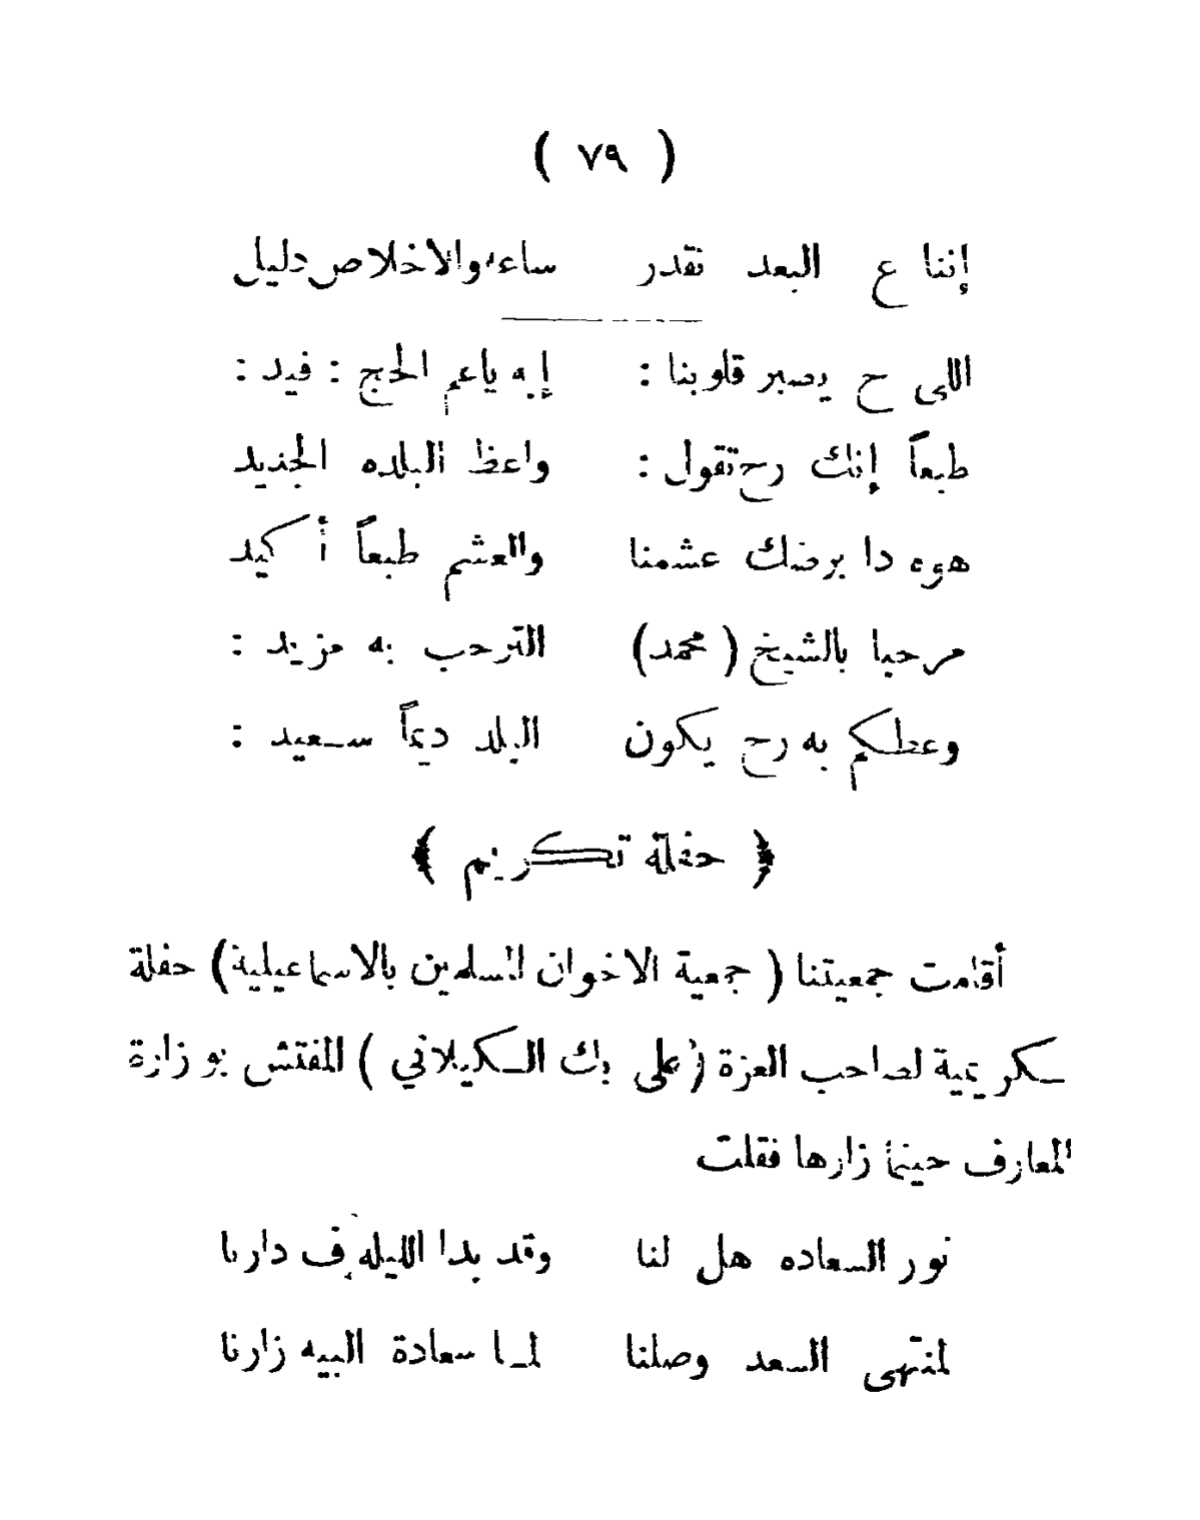 ( ٧٩ )
إننا ع البعد نقدر ساعه والاخلاص دليل
اللي ح يصبر قلوبنا : إيه ياعم الحج : فيد :
طبعاً إنك رح تقول : واعظ البلده الجديد
هوه دا برضك عشمنا والعشم طبعاً أكيد
مرحبا بالشيخ ( محمد ) الترحب به مزيد :
وعظكم به رح يكون البلد ديماً سعيد :
﴿ حفلة تكريم ﴾
أقامت جمعيتنا ( جمعية الاخوان المسلمين بالاسماعيلية ) حفلة
تكريمية لصاحب العزة ( على بك الكيلاني ) المفتش بوزارة
المعارف حينما زارها فقلت
نور السعاده هل لنا وقد بدا الليله ف دارنا
لمنتهى السعد وصلنا لما سعادة البيه زارنا